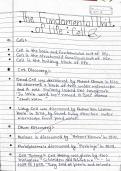 The Fundamental Unit
of Life : Cell
Cell:
Cell is the basic and fundamental unit of life.
Cell is the structural & functional unit of life.
Cell is the building block of life.
Cell Discovery:
Dead Cell was discovered by Robert Hooke in 1665.
He
and it was looking like honeycomb.
In Latin word, cell means
small room.
Living Cell was discovered by Anton Van Leeuwen-
hoek in 1674, by
microscope
Other Discovery:
Nucleus was discovered by "Robert Brown" in 1831.
Protoplasm was discovered by "Purkinje" in 1839.
Cell Theory: Cell theory was given by two
scientists, Schleiden and Schwann in
1838 & 1839. They said all plants and animals